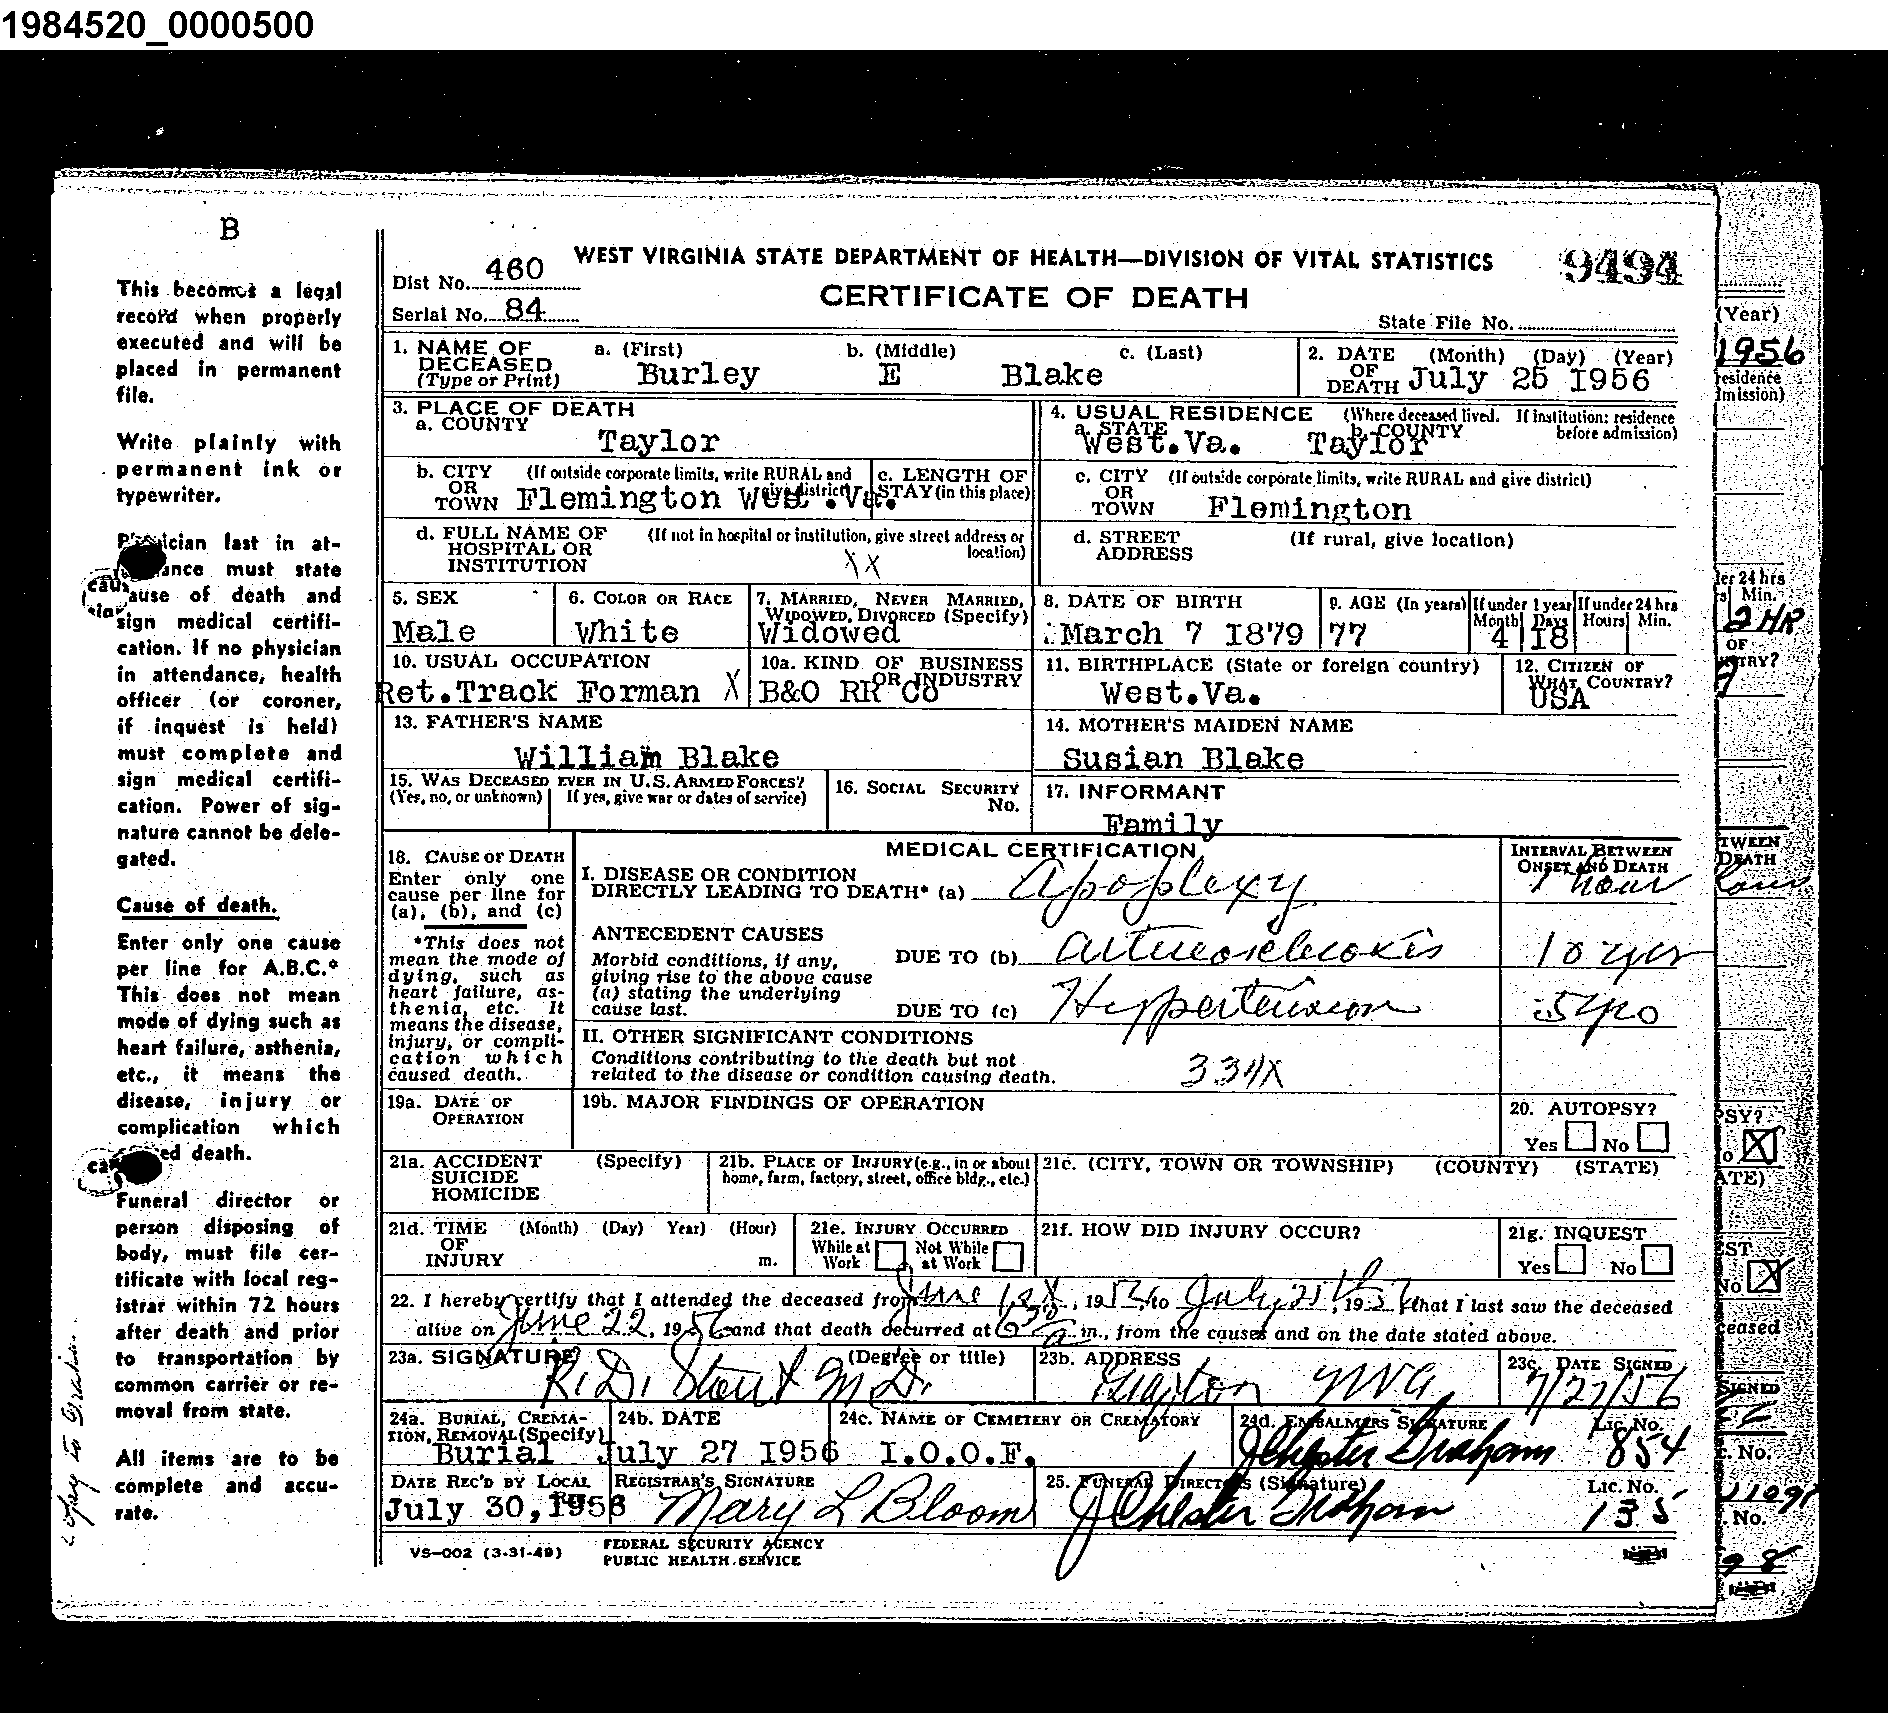 1984520_0000500
B
This becomes a legal
record when properly
executed and will be
placed in permanent
file.
Write plainly with
permanent ink or
typewriter.
Physician last in at-
ance must state
cause of death and
sign medical certifi-
cation. If no physician
in attendance, health
officer (or coroner,
if inquest is held)
must complete and
sign medical certifi-
cation. Power of sig-
nature cannot be dele-
gated.
Cause of death.
Enter only one cause
per line for A.B.C.*
This does not mean
mode of dying such as
heart failure, asthenia,
etc., it means the
disease, injury or
complication which
ed death.
Funeral director or
person disposing of
body, must file cer-
tificate with local reg-
istrar within 72 hours
after death and prior
to transportation by
common carrier or re-
moval from state.
All items are to be
complete and accu-
rate.
WEST VIRGINIA STATE DEPARTMENT OF HEALTH—DIVISION OF VITAL STATISTICS
9494
Dist No. 460
CERTIFICATE OF DEATH
Serial No. 84
State File No.
1. NAME OF DECEASED (Type or Print) a. (First) Burley b. (Middle) E c. (Last) Blake
2. DATE OF DEATH (Month) (Day) (Year) July 25 1956
3. PLACE OF DEATH
a. COUNTY Taylor
4. USUAL RESIDENCE (Where deceased lived. If institution: residence before admission)
a. STATE West.Va. b. COUNTY Taylor
b. CITY OR TOWN (If outside corporate limits, write RURAL and give district) Flemington West.Va.
c. LENGTH OF STAY (in this place)
c. CITY OR TOWN (If outside corporate limits, write RURAL and give district) Flemington
d. FULL NAME OF HOSPITAL OR INSTITUTION (If not in hospital or institution, give street address or location) XX
d. STREET ADDRESS (If rural, give location)
5. SEX Male
6. COLOR OR RACE White
7. MARRIED, NEVER MARRIED, WIDOWED, DIVORCED (Specify) Widowed
8. DATE OF BIRTH March 7 1879
9. AGE (In years) 77
If under 1 year Month 4 Days 18
If under 24 hrs Hours Min.
10. USUAL OCCUPATION Ret.Track Forman X
10a. KIND OF BUSINESS OR INDUSTRY B&O RR Co
11. BIRTHPLACE (State or foreign country) West.Va.
12. CITIZEN OF WHAT COUNTRY? USA
13. FATHER'S NAME William Blake
14. MOTHER'S MAIDEN NAME Susian Blake
15. WAS DECEASED EVER IN U.S. ARMED FORCES?
(Yes, no, or unknown) If yes, give war or dates of service)
16. SOCIAL SECURITY No.
17. INFORMANT Family
MEDICAL CERTIFICATION
INTERVAL BETWEEN ONSET AND DEATH
18. CAUSE OF DEATH
Enter only one
cause per line for
(a), (b), and (c)
*This does not
mean the mode of
dying, such as
heart failure, as-
thenia, etc. It
means the disease,
injury, or compli-
cation which
caused death.
I. DISEASE OR CONDITION
DIRECTLY LEADING TO DEATH* (a) Apoplexy 1 hour
ANTECEDENT CAUSES
Morbid conditions, if any,
giving rise to the above cause
(a) stating the underlying
cause last.
DUE TO (b) 10 yrs
DUE TO (c) Hypertension
II. OTHER SIGNIFICANT CONDITIONS
Conditions contributing to the death but not
related to the disease or condition causing death.
334X
19a. DATE OF OPERATION
19b. MAJOR FINDINGS OF OPERATION
20. AUTOPSY?
Yes No
21a. ACCIDENT SUICIDE HOMICIDE (Specify)
21b. PLACE OF INJURY (e.g., in or about home, farm, factory, street, office bldg., etc.)
21c. (CITY, TOWN OR TOWNSHIP) (COUNTY) (STATE)
21d. TIME OF INJURY (Month) (Day) Year) (Hour) m.
21e. INJURY OCCURRED
While at Work Not While at Work
21f. HOW DID INJURY OCCUR?
21g. INQUEST
Yes No
22. I hereby certify that I attended the deceased from June 1956, to July 25th, 1956, that I last saw the deceased
alive on June 22, 1956 and that death occurred at 6 30 a. m., from the causes and on the date stated above.
23a. SIGNATURE (Degree or title) R. D. Stout M.D.
23b. ADDRESS Grafton W Va
23c. DATE SIGNED 7/27/56
24a. BURIAL, CREMA-
TION, REMOVAL (Specify) Burial
24b. DATE July 27 1956
24c. NAME OF CEMETERY OR CREMATORY I.O.O.F.
24d. EMBALMERS SIGNATURE J Chester Graham Lic. No. 854
DATE REC'D BY LOCAL Reg. July 30, 1956
REGISTRAR'S SIGNATURE Mary L Bloom
25. FUNERAL DIRECTORS (Signature) J Chester Graham Lic. No. 135
VS-002 (3-31-49)
FEDERAL SECURITY AGENCY
PUBLIC HEALTH SERVICE
(Year)
1956
residence
mission)
24 hrs
Min.
2 HR
OF
DEATH
PSY?
ATE)
No
eased
SIGNED
No.
No.
98